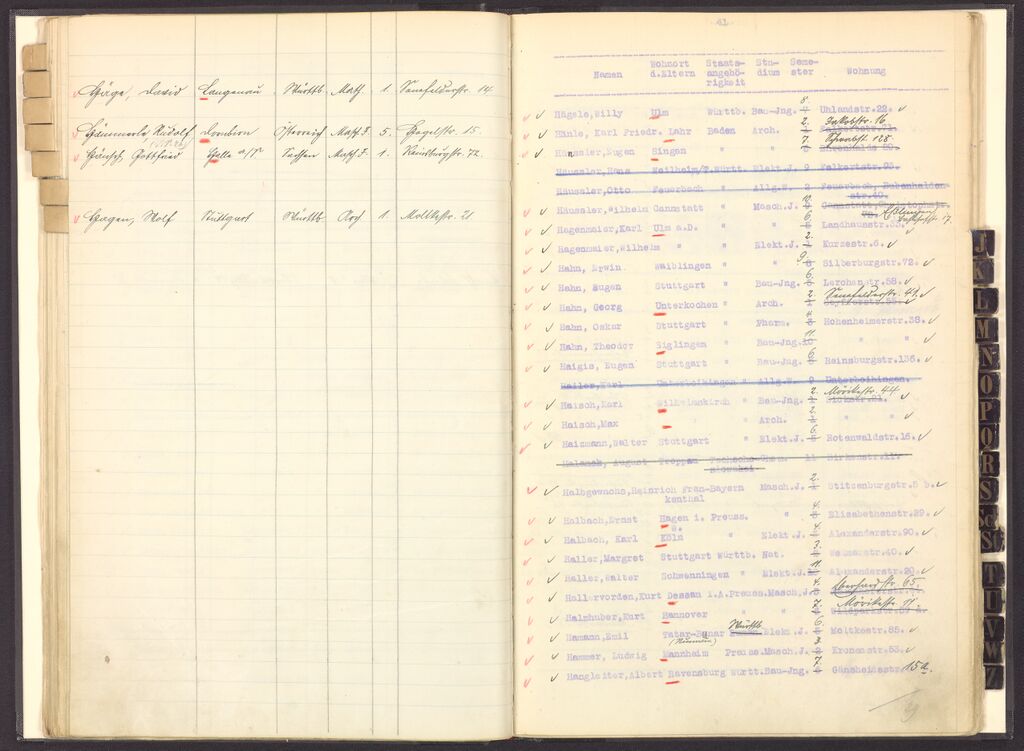 Häge, David Langenau Württb. Math. 1. Senefelderstr. 14
Hämmerle Rudolf Dornbirn Österreich Masch.J. 5. Hegelstr. 15.
Hänsch, Gottfried Halle a/S Sachsen Masch.J. 1. Reinsburgstr. 72.
Hagen, Rolf Stuttgart Württb. Arch. 1. Moltkestr. 21
41
Namen Wohnort d.Eltern Staats-angehö-rigkeit Stu-dium Seme-ster Wohnung
Hägele, Willy Ulm Württb. Bau-Jng. 8. Uhlandstr.22.
Hänle, Karl Friedr. Lahr Baden Arch. 2. Jakobstr. 16.
Häussler, Eugen Singen " " 7.
Häussler, Hans Weilheim/T.Württ. Elekt.J. 9 Falkertstr.93.
Häussler, Otto Feuerbach " Allg.W. 2 Feuerbach, Bubenhalden-
str.40.
Häussler, Wilhelm Cannstatt " Masch.J. 10 Esslingen
Hagenmaier, Karl Ulm a.D. " " 6. Landhausstr.55.
Hagenmaier, Wilhelm " " Elekt.J. 2. Kurzestr.6.
Hahn, Erwin Waiblingen " " 9. Silberburgstr.72.
Hahn, Eugen Stuttgart " Bau-Jng. 6. Lerchenstr.58.
Hahn, Georg Unterkochen " Arch. 2. Senefelderstr. 41.
Hahn, Oskar Stuttgart " Pharm. 4 Hohenheimerstr.38.
Hahn, Theodor Siglingen " Bau-Jng. 11 " "
Haigis, Eugen Stuttgart " Bau-Jng. 6 Reinsburgstr.136.
Hailer, Karl Unterboihingen " Allg.W. 9 Unterboihingen.
Haisch, Karl Wilhelmskirch " Bau-Jng. 2. Mörikestr. 44
Haisch, Max " " Arch. 2. " "
Haizmann, Walter Stuttgart " Elekt.J. 6. Rotenwaldstr.16.
Halamek, August Troppau Tschecho-slowakei Chem. 11 Birkenstr.11.
Halbgewachs, Heinrich Fran-kenthal Bayern Masch.J. 2. Stitzenburgstr.5 b.
Halbach, Ernst Hagen i. W. Preuss. " 4. Elisabethenstr.29.
Halbach, Karl Köln " Elekt.J. 4. Alexanderstr.90.
Haller, Margret Stuttgart Württb. Nat. 3. Weimarstr.40.
Haller, Walter Schwenningen " Elekt.J. 11. Alexanderstr.20.
Hallervorden, Kurt Dessau i.A.Preuss.Masch.J. 4. Eberhardstr. 65.
Halmhuber, Kurt Hannover " " 7. Mörikestr. 11.
Hamann, Emil Tatar-Bunar (Rumän.) Württb. Elekt.J. 6. Moltkestr.85.
Hammer, Ludwig Mannheim Preuss.Masch.J. 3. Kronenstr.53.
Hangleiter, Albert Ravensburg Württ.Bau-Jng. 7. Gänsheidestr. 15a.
J
K
L
M
N
O
P
Q
R
S
Sch
St
T
U
V
W
Z